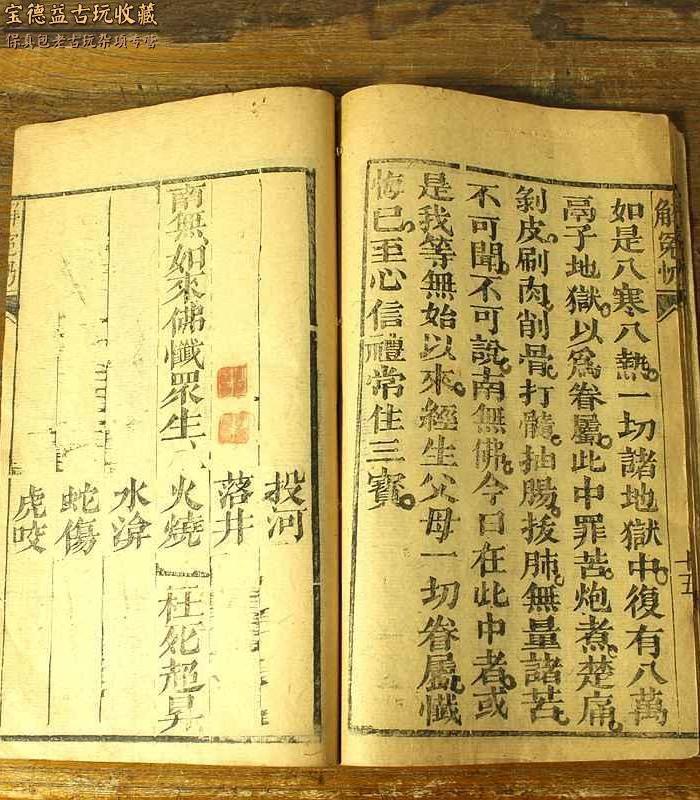 宝德益古玩收藏
保真包老古玩杂项专营
如是八寒八熱。一切諸地獄中。復有八萬
鬲子地獄。以爲眷屬。此中罪苦。炮煮。楚痛。
剝皮。刷肉。削骨。打髓。抽腸。拔肺。無量諸苦。
不可聞。不可說。南無佛。今日在此中者。或
是我等無始以來。經生父母一切眷屬。懺
悔已。至心信禮常住三寶。
十五
投河
落井
南無如來佛懺眾生
火燒
枉死超昇
水渰
蛇傷
虎咬